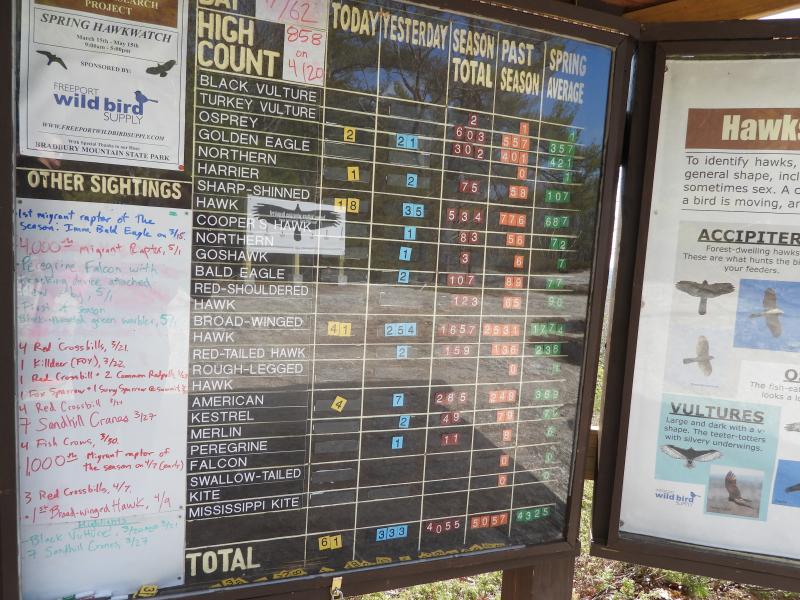 RESEARCH
PROJECT
SPRING HAWKWATCH
March 15th - May 15th
9:00am - 5:00pm
SPONSORED BY:
FREEPORT
wild bird
SUPPLY
WWW.FREEPORTWILDBIRDSUPPLY.COM
With Special Thanks to our Host:
BRADBURY MOUNTAIN STATE PARK
OTHER SIGHTINGS
1st migrant raptor of the
season: Imm. Bald Eagle on 3/15.
4,000th migrant Raptor, 5/1
Peregrine Falcon with
tracking device attached
5/1
First of Season
green warbler, 5/1
4 Red Crossbills, 3/21.
1 Killdeer (FOY), 3/22.
1 Red Crossbill + 2 Common Redpolls
1 Fox Sparrow + 1 Song Sparrow @ summit
4 Red Crossbill
7 Sandhill Cranes 3/27
4 Fish Crows, 3/30.
1,000th Migrant raptor of
the season on 4/7 (early)
3 Red Crossbills, 4/7.
1st Broad-winged Hawk, 4/9
Highlights
Black Vulture, 3/21
7 Sandhill Cranes, 3/27
DAY
HIGH
COUNT
858
on
4/20
TODAY YESTERDAY SEASON TOTAL PAST SEASON SPRING AVERAGE
BLACK VULTURE 2 1 1
TURKEY VULTURE 603 557 357
OSPREY 2 21 302 401 421
GOLDEN EAGLE 0 1
NORTHERN HARRIER 1 2 75 58 107
SHARP-SHINNED
HAWK 18 35 534 776 687
COOPER'S HAWK 1 83 56 72
NORTHERN
GOSHAWK 1 3 6 7
BALD EAGLE 2 107 89 77
RED-SHOULDERED
HAWK 123 65 90
BROAD-WINGED
HAWK 41 254 1657 2531 1774
RED-TAILED HAWK 2 159 136 238
ROUGH-LEGGED
HAWK 0
AMERICAN
KESTREL 4 7 285 248 389
MERLIN 2 49 79
PEREGRINE
FALCON 1 11 8
SWALLOW-TAILED
KITE 0
MISSISSIPPI KITE 0
TOTAL 61 333 4055 5057 4325
To identify hawks,
general shape, incl
sometimes sex. A c
a bird is moving, an
ACCIPITER
Forest-dwelling hawks
These are what hunts the bi
your feeders.
The fish-ea
looks a lo
VULTURES
Large and dark with a v-
shape. The teeter-totters
with silvery underwings.
FREEPORT
wild bird
SUPPLY